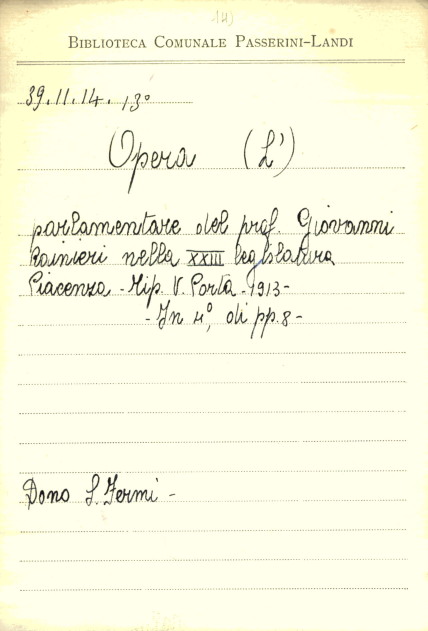 14)
BIBLIOTECA COMUNALE PASSERINI-LANDI
39.11.14. 13°
Opera (L')
parlamentare del prof. Giovanni
Rainieri nella XXIII legislatura
Piacenza - Tip. V. Porta - 1913 -
- In 4°, di pp. 8 -
Dono S. Fermi -